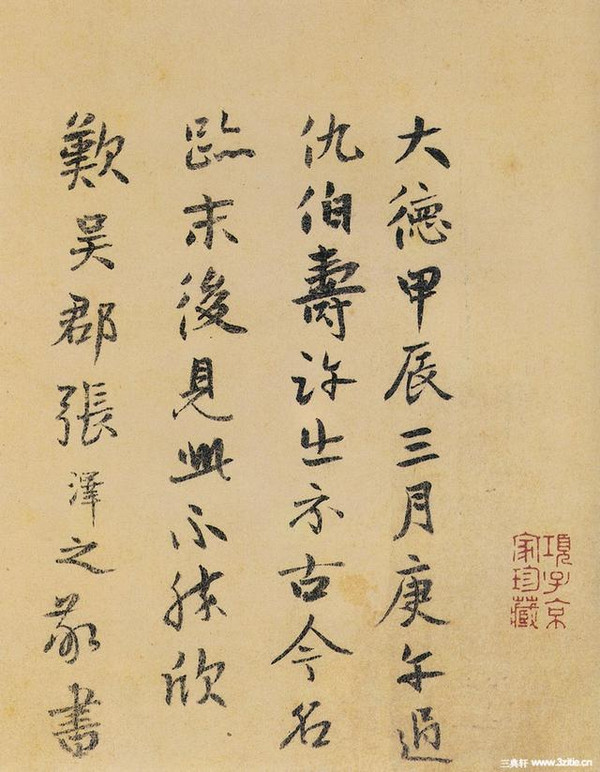 大德甲辰三月庚午過
仇伯壽許出示古今名
跡末後見此不勝欣
歎吳郡張澤之敬書
項子京
家珍藏
三典轩 www.3zitie.cn